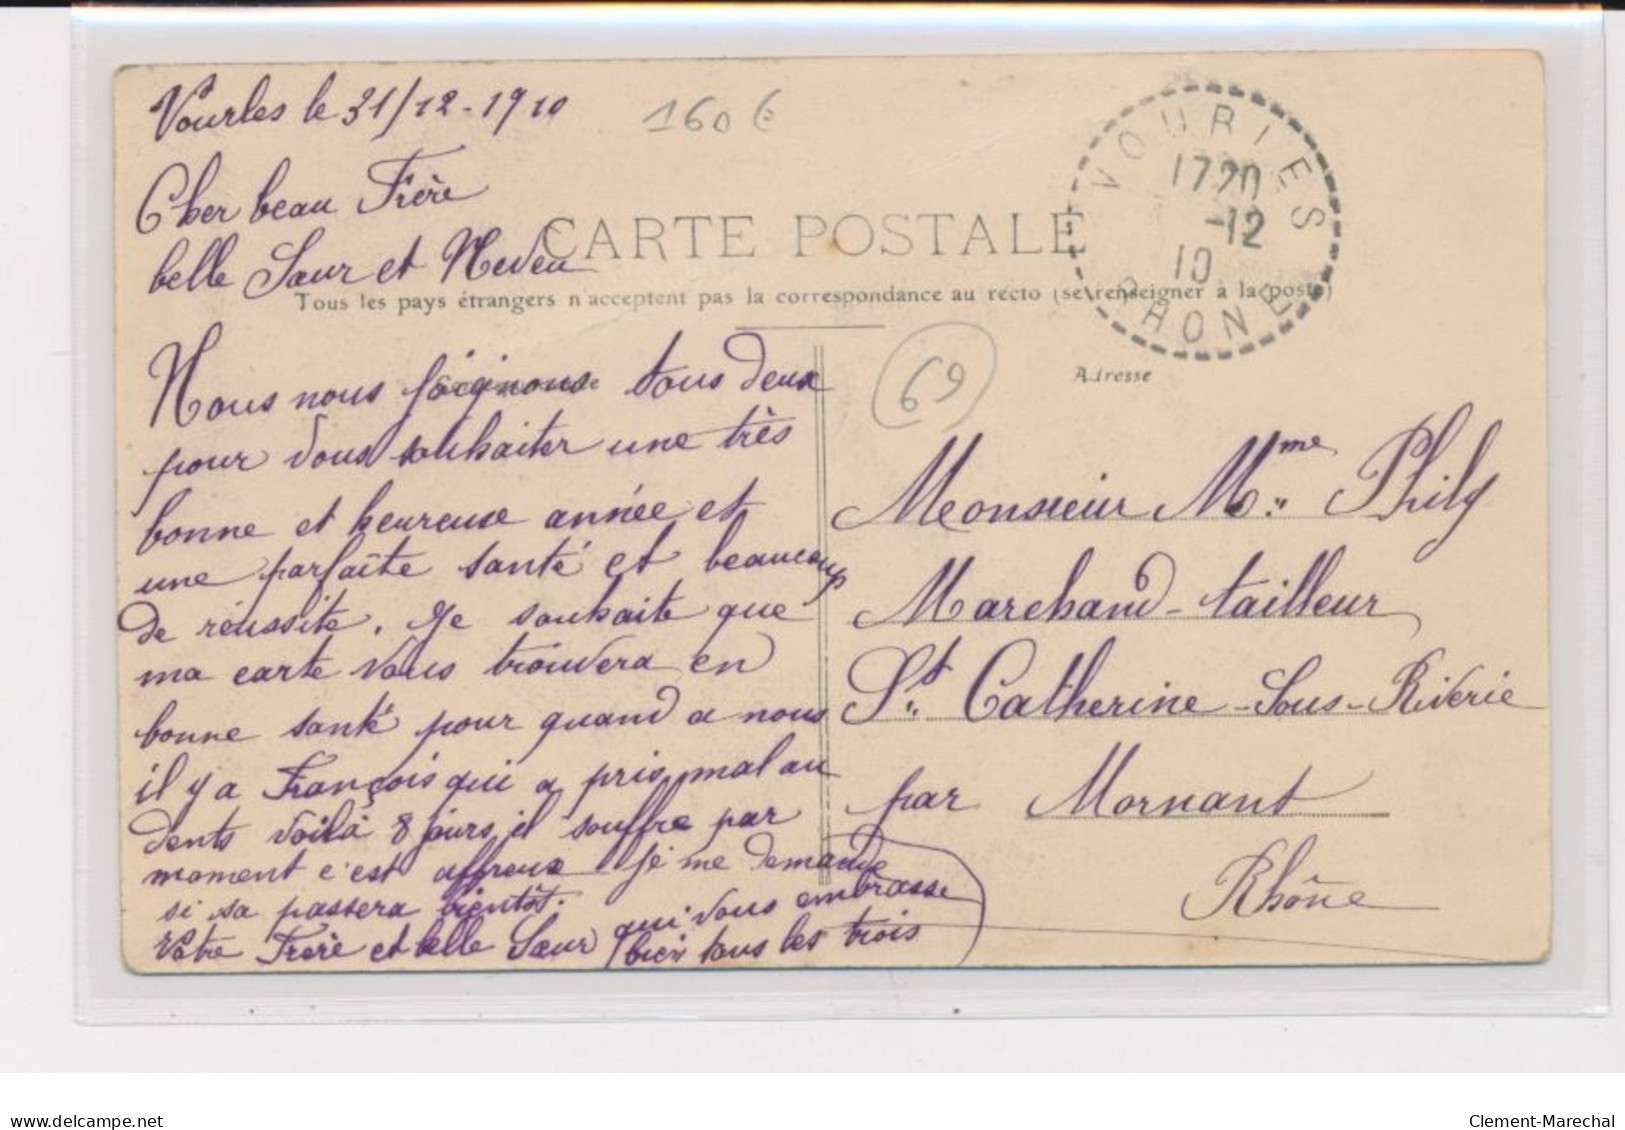 Vourles le 31/12-1910
160 €
Cher beau Frère
belle Sœur et Neveu
CARTE POSTALE
Tous les pays étrangers n'acceptent pas la correspondance au recto (se renseigner à la poste)
VOURLES
1720
-12
10
RHONE
Nous nous joignons tous deux
pour vous souhaiter une très
bonne et heureuse année et
une parfaite santé et beaucoup
de réussite. Je souhaite que
ma carte vous trouvera en
bonne santé pour quand a nous
il y a François qui a pris mal au
dents voilà 8 jours il souffre par
moment c'est affreux je me demande
si sa passera bientôt.
Votre Frère et belle Sœur qui vous embrasse
bien tous les trois
69
Adresse
Monsieur Mme Phily
Marchand-tailleur
St Catherine-Sous-Riverie
par Mornant
Rhône
www.delcampe.net
Clement-Marechal